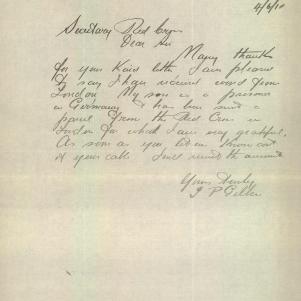 4/6/18
Secretary Red Cross
Dear Sir
Many thanks
for your Kind letter I am pleased
to say I have received word from
London My son is a prisoner
in Germany & has been sent a
parcel from the Red Cross in
London for which I am very grateful.
As soon as you let me know cost
of your cable I will remit the amount
Yours Truly
J P